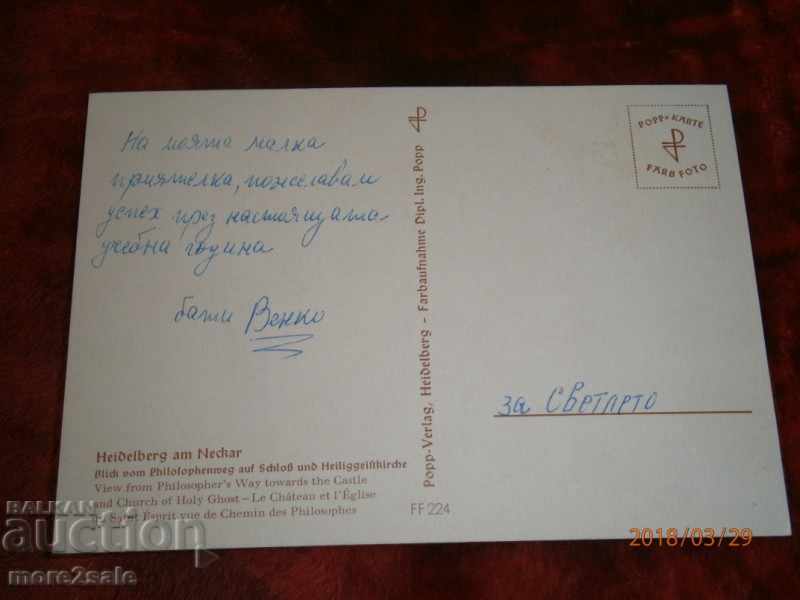 На моята малка
приятелка, пожелавам
успех през настоящата
учебна година
бати Венко
за Светлето
Heidelberg am Neckar
Blick vom Philosophenweg auf Schloß und Heiliggeistkirche
View from Philosopher's Way towards the Castle
and Church of Holy Ghost – Le Château et l'Église
Saint Esprit vue de Chemin des Philosophes
Popp-Verlag, Heidelberg - Farbaufnahme Dipl. Ing. Popp
FF 224
POPP-KARTE
FARBFOTO
2018/03/29
БАЛКАН
auction
more2sale